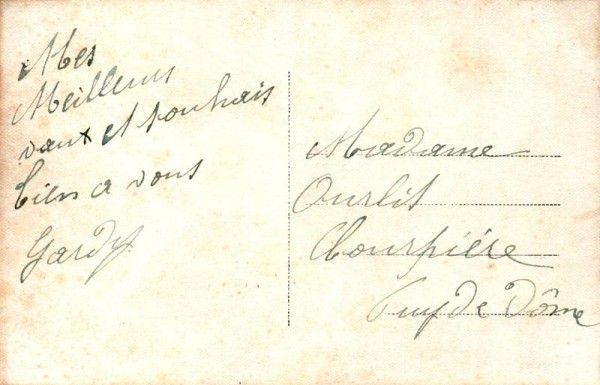 Mes
Meilleurs
vœux et souhais
bien a vous
Gardy
Madame
Ourlit
Courpiére
Puy de Dôme